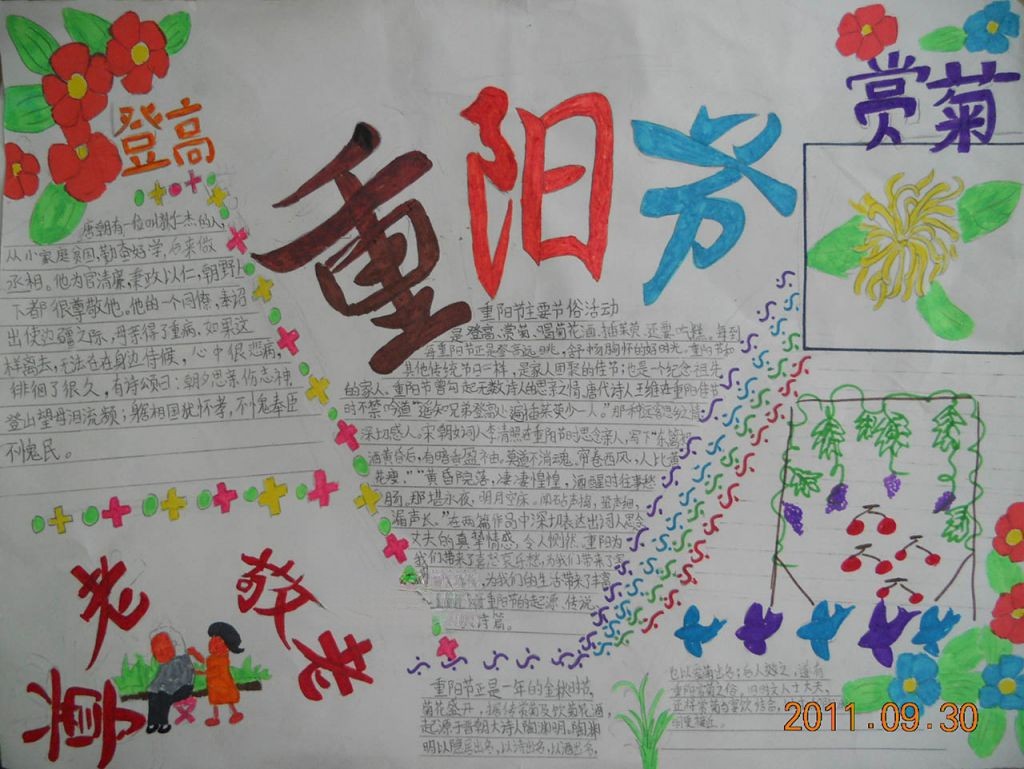 登高
重阳节
赏菊
唐朝有一位叫狄仁杰的人,
从小家庭贫困,勤奋好学,后来做
丞相。他为官清廉,秉政以仁,朝野上
下都很尊敬他。他的一个同僚,奉诏
出使边疆之际,母亲得了重病,如果这
样离去,无法在在身边侍候,心中很悲痛,
徘徊了很久,有诗颂曰:朝夕思亲伤志神,
登山望母泪流频;
不愧民。
重阳节主要节俗活动
是登高、赏菊、喝菊花酒、插茱萸、还要吃糕。每到
重阳节正是登高远眺,舒畅胸怀的好时光。重阳节和
其他传统节日一样,是家人团聚的佳节;也是一个纪念祖先
的家人。重阳节曾勾起无数诗人的思亲之情,唐代诗人王维在重阳佳节
时不禁吟道“遥知兄弟登高处,遍插茱萸少一人。”那种
深切感人。宋朝女词人李清照在重阳节时思念亲人,写下“东篱把
酒黄昏后,有暗香盈袖。莫道不消魂,帘卷西风,人比黄
花瘦。”“黄昏院落,凄凄惶惶,酒醒时往事愁
肠,那堪永夜,明月空床。闻砧声捣,蛩声细,
漏声长。”在两篇作品中深切表达出词人思念
丈夫的真挚情感,令人恻然。重阳为
我们带来了喜怒哀乐愁,为我们带来了
为我们的生活带来了丰富
重阳节的起源、传说、
诗篇。
敬老
尊老
重阳节正是一年的金秋时节,
菊花盛开,据传赏菊及饮菊花酒,
起源于晋朝大诗人陶渊明。陶渊
明以隐居出名,以诗出名,以酒出名,
也以爱菊出名;后人效之,遂有
重阳赏菊之俗。旧时文人士大夫,
2011.09.30